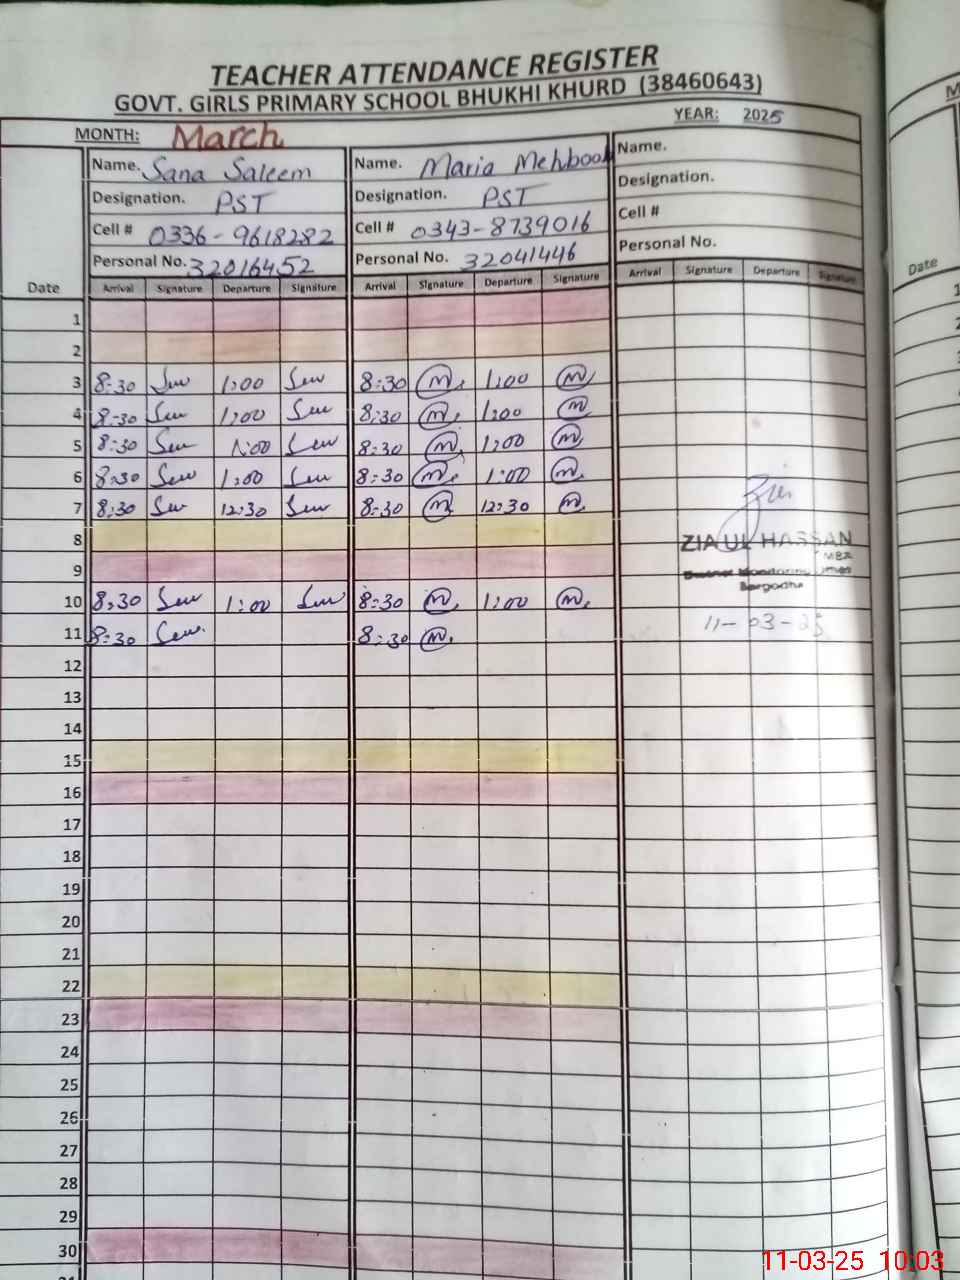 TEACHER ATTENDANCE REGISTER
GOVT. GIRLS PRIMARY SCHOOL BHUKHI KHURD (38460643)
MONTH: March YEAR: 2025
Name. Sana Saleem Name. Maria Mehboob Name.
Designation. PST Designation. PST Designation.
Cell # 0336-9618282 Cell # 0343-8739016 Cell #
Personal No. 32016452 Personal No. 32041446 Personal No.
Date Arrival Signature Departure Signature Arrival Signature Departure Signature Arrival Signature Departure Signature Date
1
2
3 8:30 1:00 8:30 m. 1:00 m
4 8:30 1:00 8:30 m. 1:00 m
5 8:30 1:00 8:30 m. 1:00 m.
6 8:30 1:00 8:30 m. 1:00 m.
7 8:30 12:30 8:30 m. 12:30 m.
8
ZIA UL HASSAN
MBA
9
District Monitoring
Sargodha
10 8:30 1:00 8:30 m. 1:00 m.
11 8:30 8:30 m.
11-03-25
12
13
14
15
16
17
18
19
20
21
22
23
24
25
26
27
28
29
30
11-03-25 10:03